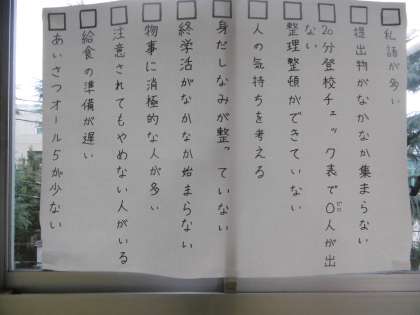 □私語が多い
□提出物がなかなか集まらない
□20分登校チェック表で0人が出
ない
□整理整頓ができていない
□人の気持ちを考える
□身だしなみが整っていない
□終学活がなかなか始まらない
□物事に消極的な人が多い
□注意されてもやめない人がいる
□給食の準備が遅い
□あいさつオール5が少ない